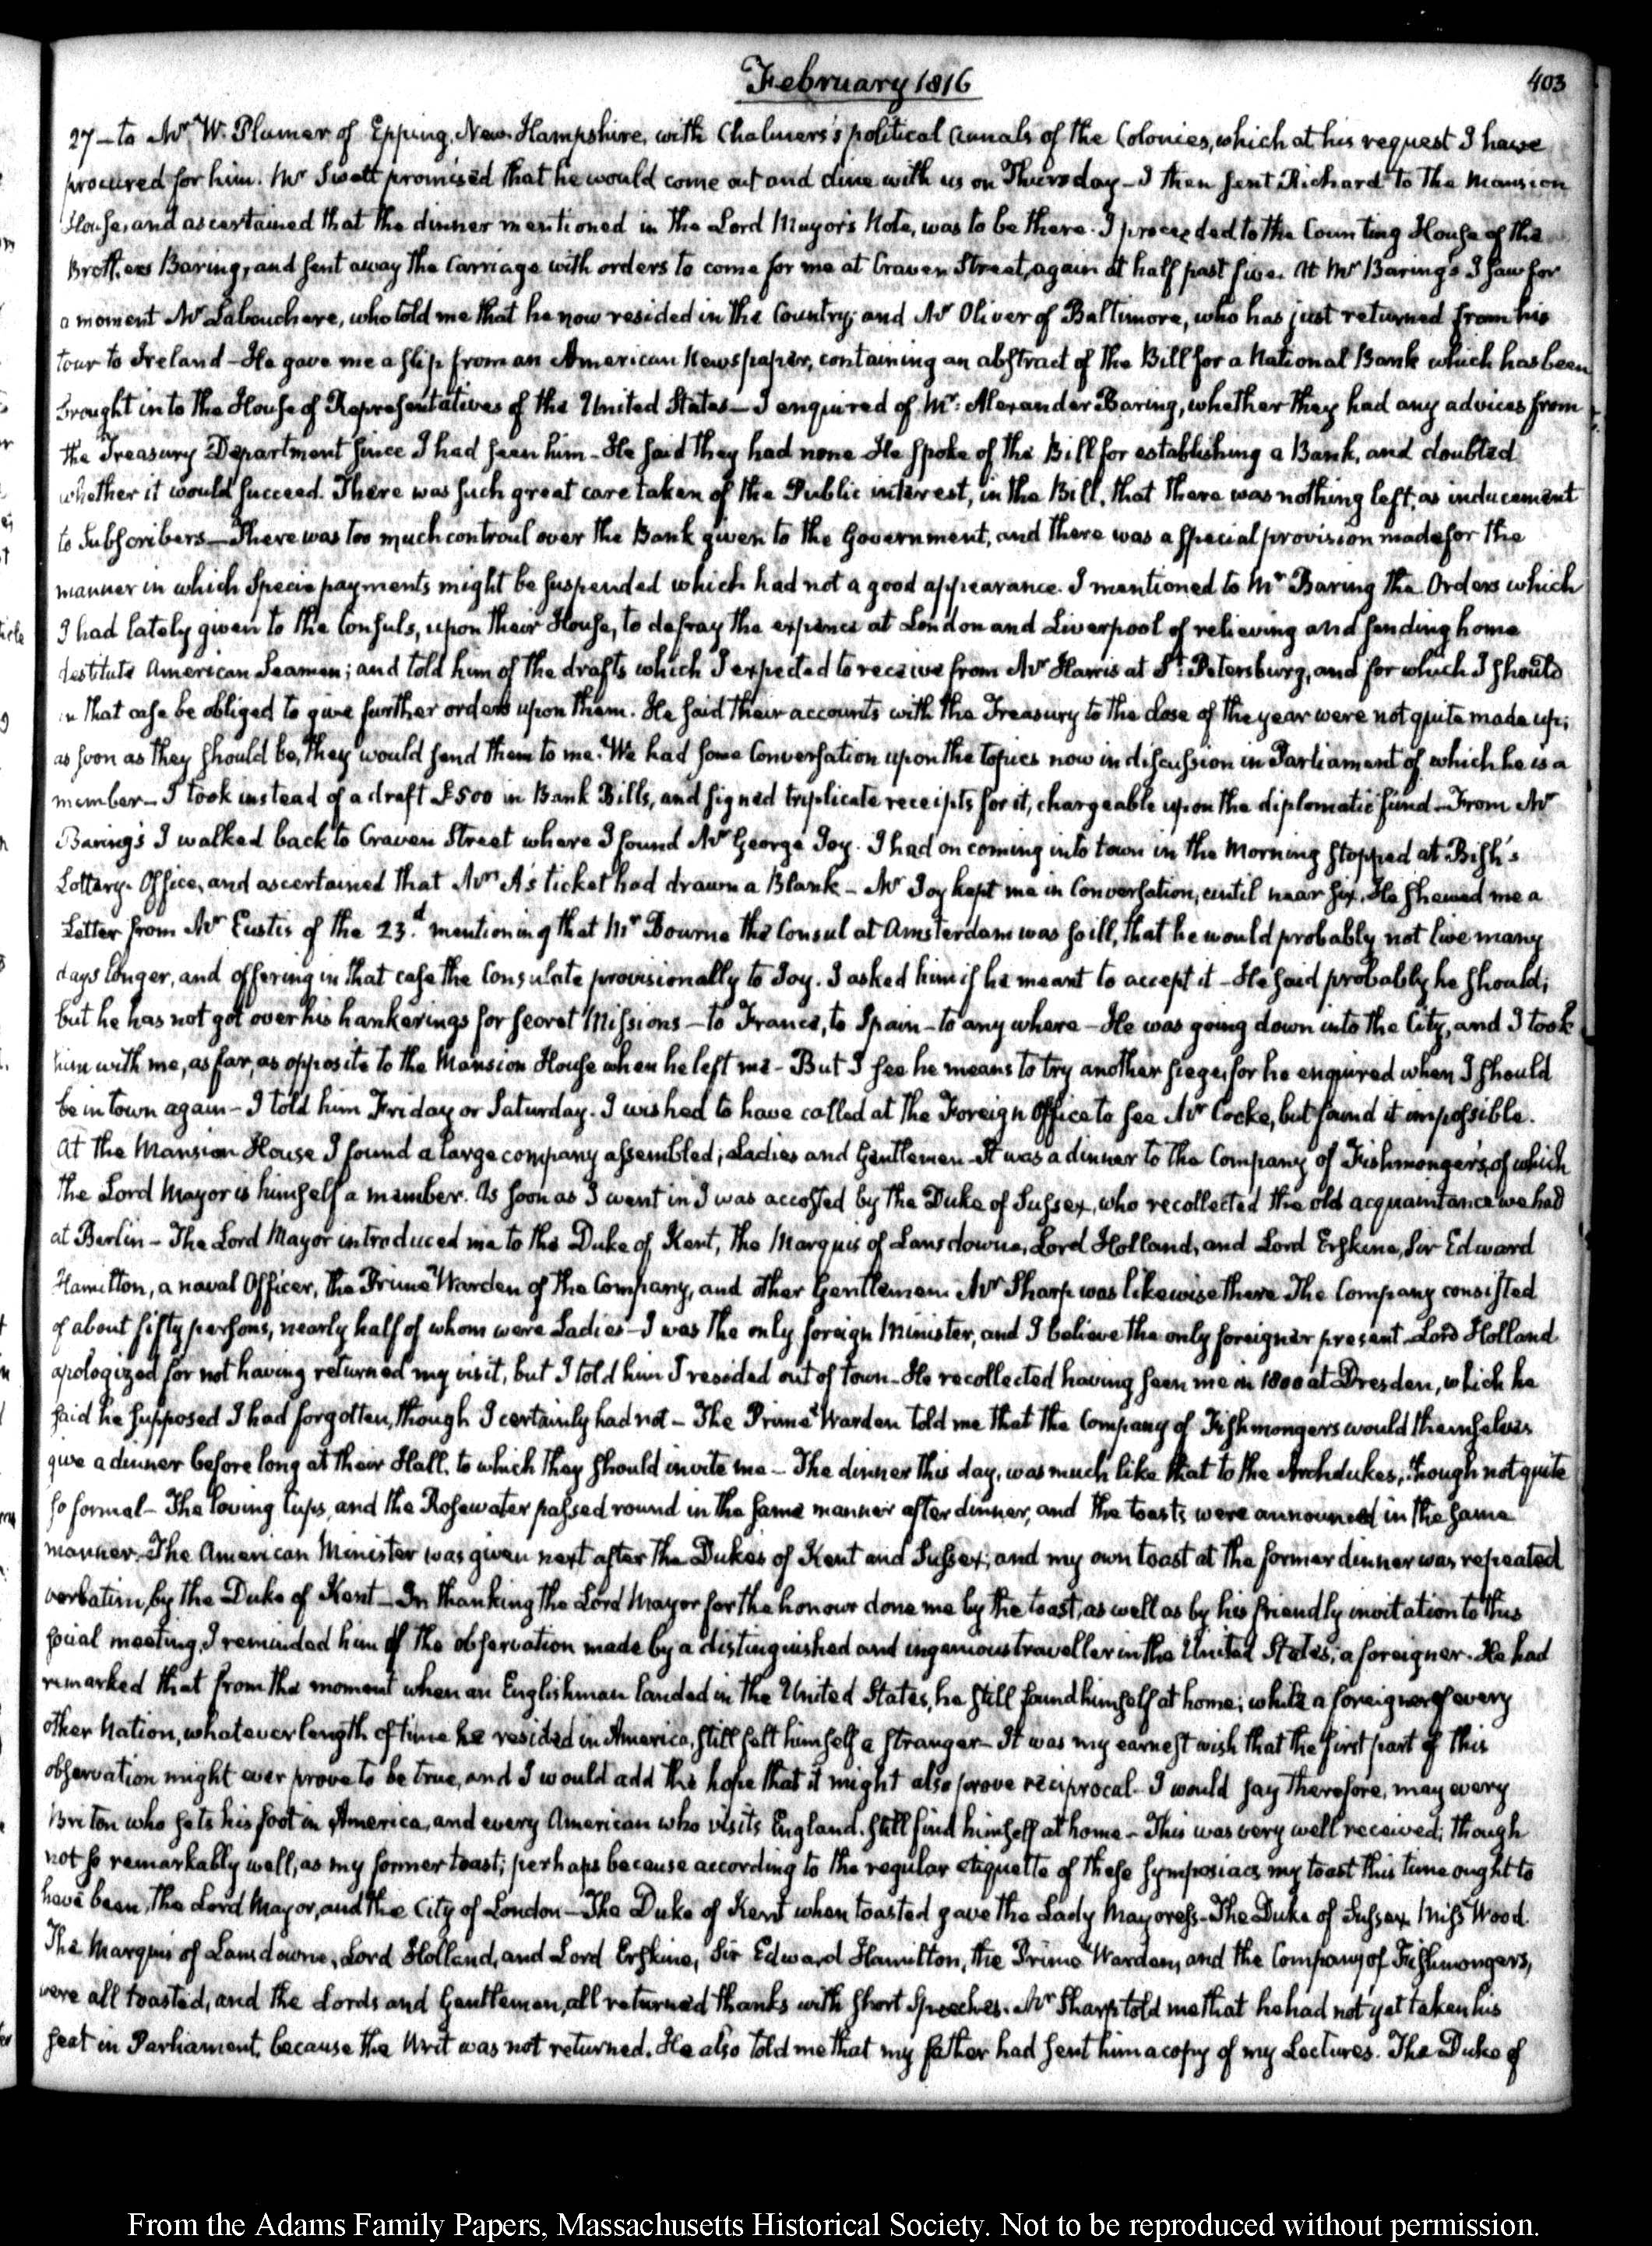 February 1816
403
27 – to Mr. W. Plumer of Epping, New-Hampshire, with Chalmers's political Annals of the Colonies, which at his request I have
procured for him. Mr Swett promised that he would come out and dine with us on Thursday – I then sent Richard to The Mansion
House, and ascertained that the dinner mentioned in the Lord Mayor's Note, was to be there. I proceeded to the Counting House of the
Brothers Baring, and sent away the Carriage with orders to come for me at Craven Street, again at half past five. At Mr Baring's I saw for
a moment Mr Labouchere, who told me that he now resided in the Country; and Mr Oliver of Baltimore, who has just returned from his
tour to Ireland – He gave me a slip from an American Newspaper, containing an abstract of the Bill for a National Bank which has been
brought into the House of Representatives of the United States – I enquired of Mr: Alexander Baring, whether they had any advices from
the Treasury Department since I had seen him – He said they had none He spoke of the Bill for establishing a Bank, and doubted
whether it would succeed. There was such great care taken of the Public interest, in the Bill, that there was nothing left, as inducement
to Subscribers – There was too much controul over the Bank given to the Government, and there was a special provision made for the
manner in which Specie payments might be suspended which had not a good appearance. I mentioned to Mr Baring the Orders which
I had lately given to the Consuls, upon their House, to defray the expence at London and Liverpool of relieving and sending home
destitute American Seamen; and told him of the drafts which I expected to receive from Mr Harris at St: Petersburg, and for which I should
in that case be obliged to give further orders upon them. He said their accounts with the Treasury to the close of the year were not quite made up;
as soon as they should be, they would send them to me. We had some Conversation upon the topics now in discussion in Parliament of which he is a
member – I took instead of a draft £500 in Bank Bills, and signed triplicate receipts for it, chargeable upon the diplomatic fund – From Mr
Baring's I walked back to Craven Street where I found Mr George Joy. I had on coming into town in the Morning stopped at Bish's
Lottery-Office, and ascertained that Mrs A's ticket had drawn a Blank – Mr Joy kept me in Conversation, until near six. He shewed me a
Letter from Mr Eustis of the 23d. mentioning that Mr Bourne the Consul at Amsterdam was so ill, that he would probably not live many
days longer, and offering in that case the Consulate provisionally to Joy. I asked him if he meant to accept it – He said probably he should;
but he has not got over his hankerings for secret Missions – to France, to Spain – to any where – He was going down into the City, and I took
him with me, as far, as opposite to the Mansion House when he left me – But I see he means to try another siege, for he enquired when I should
be in town again – I told him Friday or Saturday. I wished to have called at the Foreign Office to see Mr Cocke, but found it impossible.
At the Mansion House I found a large company assembled; Ladies and Gentlemen – It was a dinner to the Company of Fishmongers, of which
the Lord Mayor is himself a member. As soon as I went in I was accosted by the Duke of Sussex, who recollected the old acquaintance we had
at Berlin – The Lord Mayor introduced me to the Duke of Kent, the Marquis of Lansdowne, Lord Holland, and Lord Erskine, Sir Edward
Hamilton, a naval Officer, the Prime Warden of the Company, and other Gentlemen. Mr Sharp was likewise there The Company consisted
of about fifty persons, nearly half of whom were Ladies – I was the only foreign Minister, and I believe the only foreigner present – Lord Holland
apologized for not having returned my visit, but I told him I resided out of town – He recollected having seen me in 1800 at Dresden, which he
said he supposed I had forgotten, though I certainly had not – The Prime Warden told me that the Company of Fishmongers would themselves
give a dinner before long at their Hall, to which they should invite me – The dinner this day, was much like that to the Archdukes, though not quite
so formal – The loving Cups, and the Rosewater passed round in the same manner after dinner, and the toasts were announced in the same
manner. The American Minister was given next after the Dukes of Kent and Sussex; and my own toast at the former dinner was repeated
verbatim, by the Duke of Kent – In thanking the Lord Mayor for the honour done me by the toast, as well as by his friendly invitation to this
social meeting, I reminded him of the observation made by a distinguished and ingenious traveller in the United States, a foreigner. He had
remarked that from the moment when an Englishman landed in the United States, he still found himself at home; while a foreigner of every
other Nation, whatever length of time he resided in America, still felt himself a stranger – It was my earnest wish that the first part of this
observation might ever prove to be true, and I would add the hope that it might also prove reciprocal – I would say therefore, may every
Briton who sets his foot in America, and every American who visits England, still find himself at home – This was very well received; though
not so remarkably well, as my former toast; perhaps because according to the regular etiquette of these symposiacs my toast this time ought to
have been, The Lord Mayor, and the City of London – The Duke of Kent when toasted gave the Lady Mayoress – The Duke of Sussex Miss Wood.
The Marquis of Lansdowne, Lord Holland, and Lord Erskine, Sir Edward Hamilton, the Prime Warden, and the Company of Fishmongers,
were all toasted, and the Lords and Gentlemen, all returned thanks with short Speeches. Mr Sharp told me that he had not yet taken his
seat in Parliament, because the Writ was not returned. He also told me that my father had sent him a copy of my Lectures. The Duke of
From the Adams Family Papers, Massachusetts Historical Society. Not to be reproduced without permission.